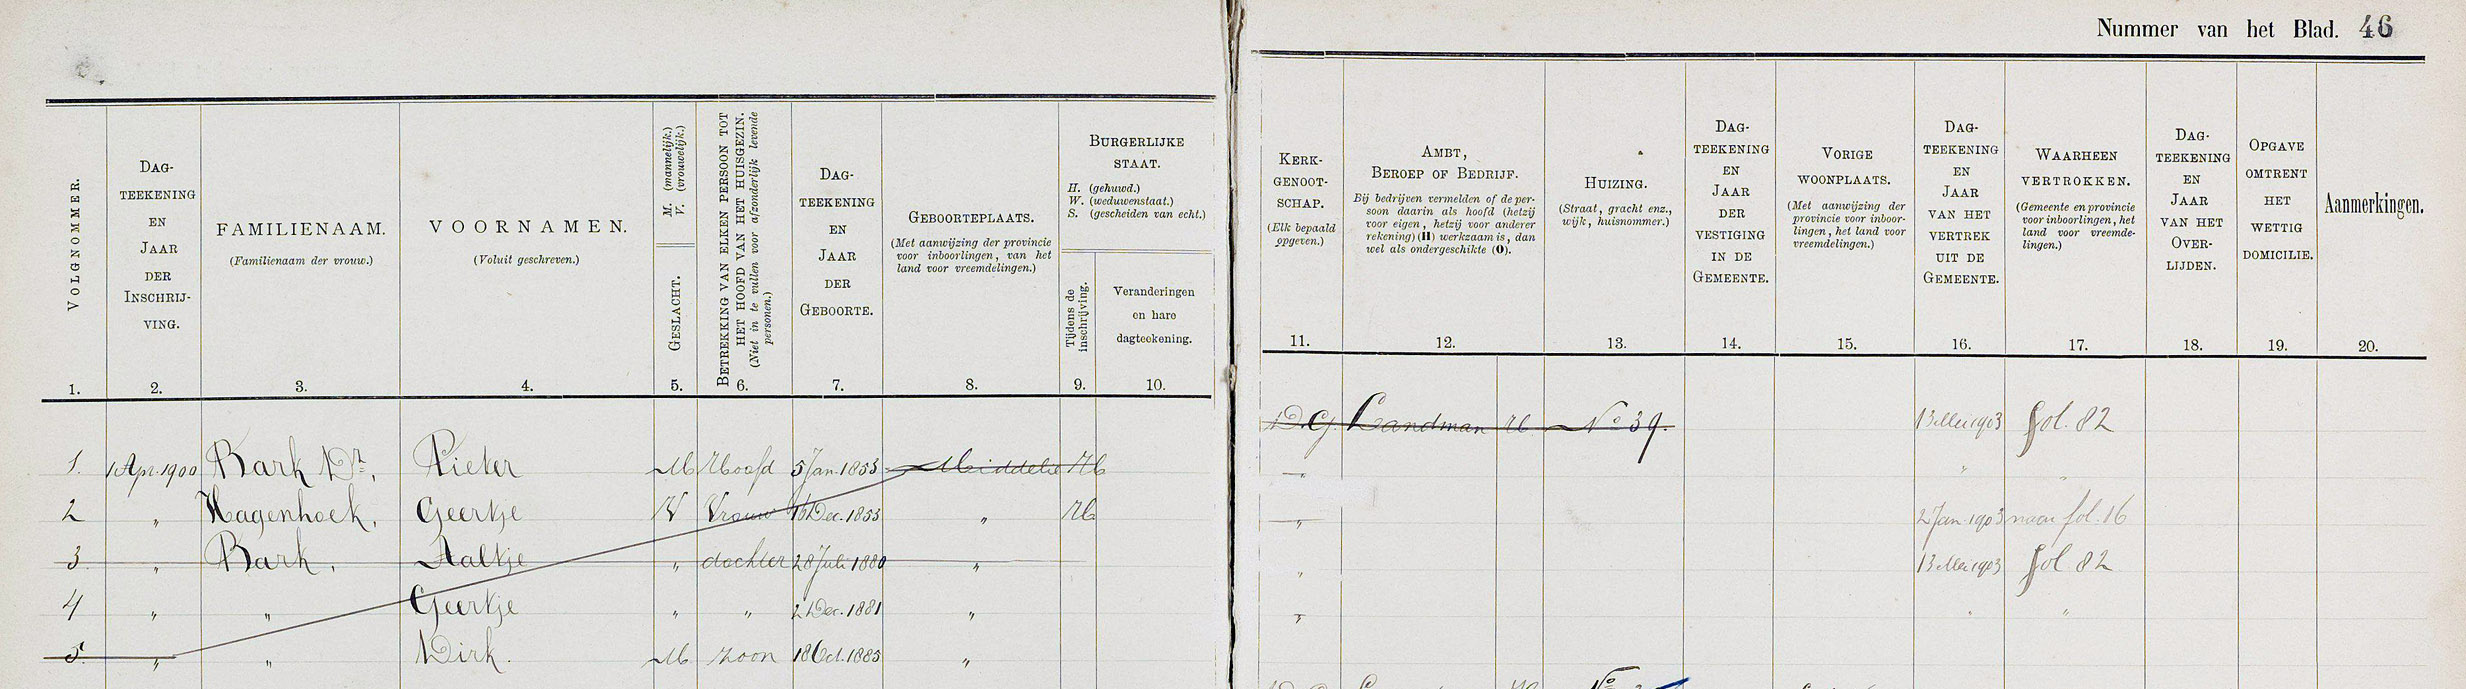 Nummer van het Blad. 46
VOLGNOMMER.
1.
DAG-
TEEKENING
EN
JAAR
DER
INSCHRIJ-
VING.
2.
FAMILIENAAM.
(Familienaam der vrouw.)
3.
VOORNAMEN.
(Voluit geschreven.)
4.
GESLACHT.
M. (mannelijk.)
V. (vrouwelijk.)
5.
BETREKKING VAN ELKEN PERSOON TOT
HET HOOFD VAN HET HUISGEZIN.
(Niet in te vullen voor afzonderlijk levende
personen.)
6.
DAG-
TEEKENING
EN
JAAR
DER
GEBOORTE.
7.
GEBOORTEPLAATS.
(Met aanwijzing der provincie
voor inboorlingen, van het
land voor vreemdelingen.)
8.
BURGERLIJKE
STAAT.
H. (gehuwd.)
W. (weduwenstaat.)
S. (gescheiden van echt.)
Tijdens de
inschrijving.
9.
Veranderingen
en hare
dagteekening.
10.
KERK-
GENOOT-
SCHAP.
(Elk bepaald
opgeven.)
11.
AMBT,
BEROEP OF BEDRIJF.
Bij bedrijven vermelden of de per-
soon daarin als hoofd (hetzij
voor eigen, hetzij voor anderer
rekening) (H) werkzaam is, dan
wel als ondergeschikte (O).
12.
HUIZING.
(Straat, gracht enz.,
wijk, huisnommer.)
13.
DAG-
TEEKENING
EN
JAAR
DER
VESTIGING
IN DE
GEMEENTE.
14.
VORIGE
WOONPLAATS.
(Met aanwijzing der
provincie voor inboor-
lingen, het land voor
vreemdelingen.)
15.
DAG-
TEEKENING
EN
JAAR
VAN HET
VERTREK
UIT DE
GEMEENTE.
16.
WAARHEEN
VERTROKKEN.
(Gemeente en provincie
voor inboorlingen, het
land voor vreemde-
lingen.)
17.
DAG-
TEEKENING
EN
JAAR
VAN HET
OVER-
LIJDEN.
18.
OPGAVE
OMTRENT
HET
WETTIG
DOMICILIE.
19.
Aanmerkingen.
20.
1. 1 Apr. 1900 Bark Dz., Pieter M Hoofd 5 Jan. 1853 Middelie H D.G. Landman H No 39. 13 Mei 1903 fol. 82
2 " Hagenhoek, Geertje V Vrouw 16 Dec. 1853 " H " " "
3 " Bark, Aaltje " dochter 28 Juli 1880 " " 2 Jan. 1903 naar fol. 16
4 " " Geertje " " 2 Dec. 1881 " " 13 Mei 1903 fol 82
5. " " Dirk. M zoon 18 Oct. 1885 " " " "